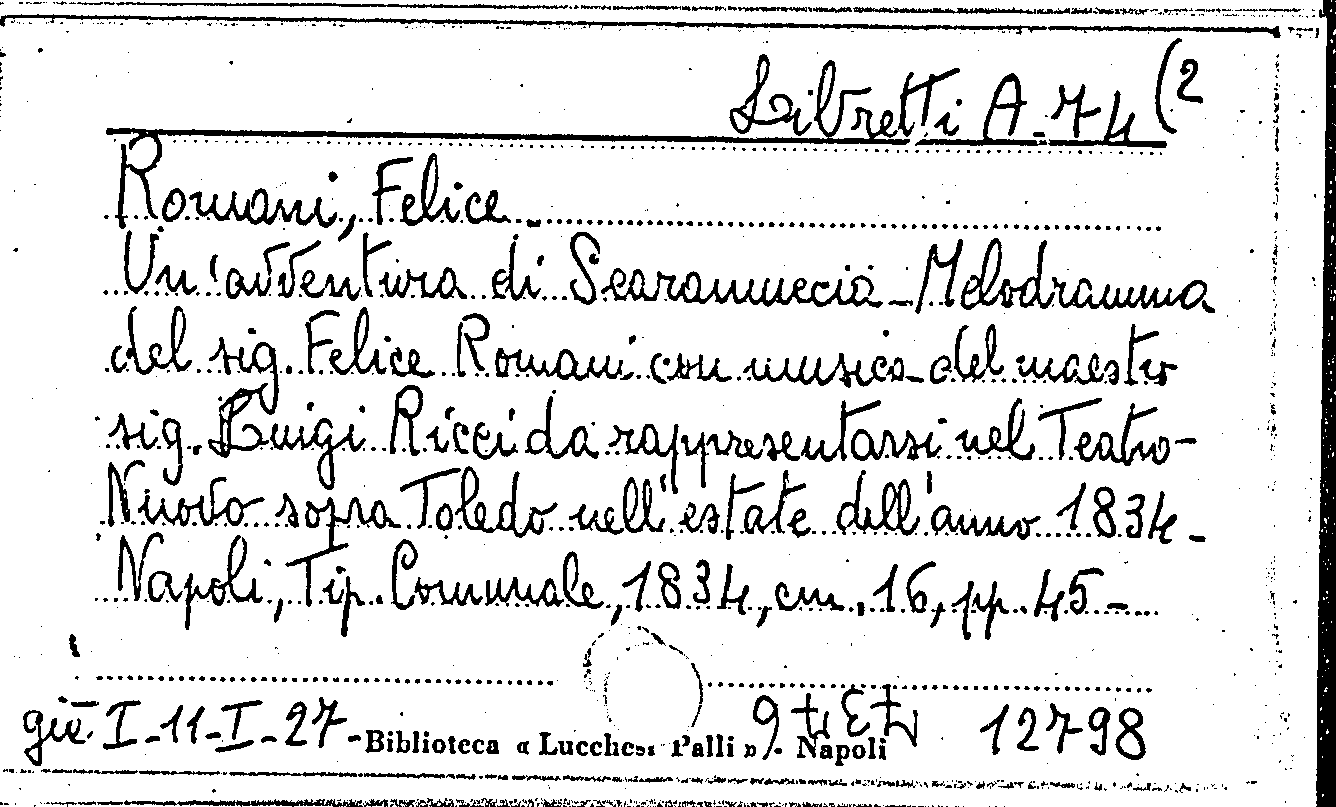 Libretti A-74 (2
Romani, Felice -
Un'avventura di Scaramuccia - Melodramma
del sig. Felice Romani con musica del maestro
sig. Luigi Ricci da rappresentarsi nel Teatro
Nuovo sopra Toledo nell'estate dell'anno 1834 -
Napoli, Tip. Comunale, 1834, cm. 16, pp. 45 -
già I-11-I-27- 12798
Biblioteca « Lucchesi Palli » - Napoli